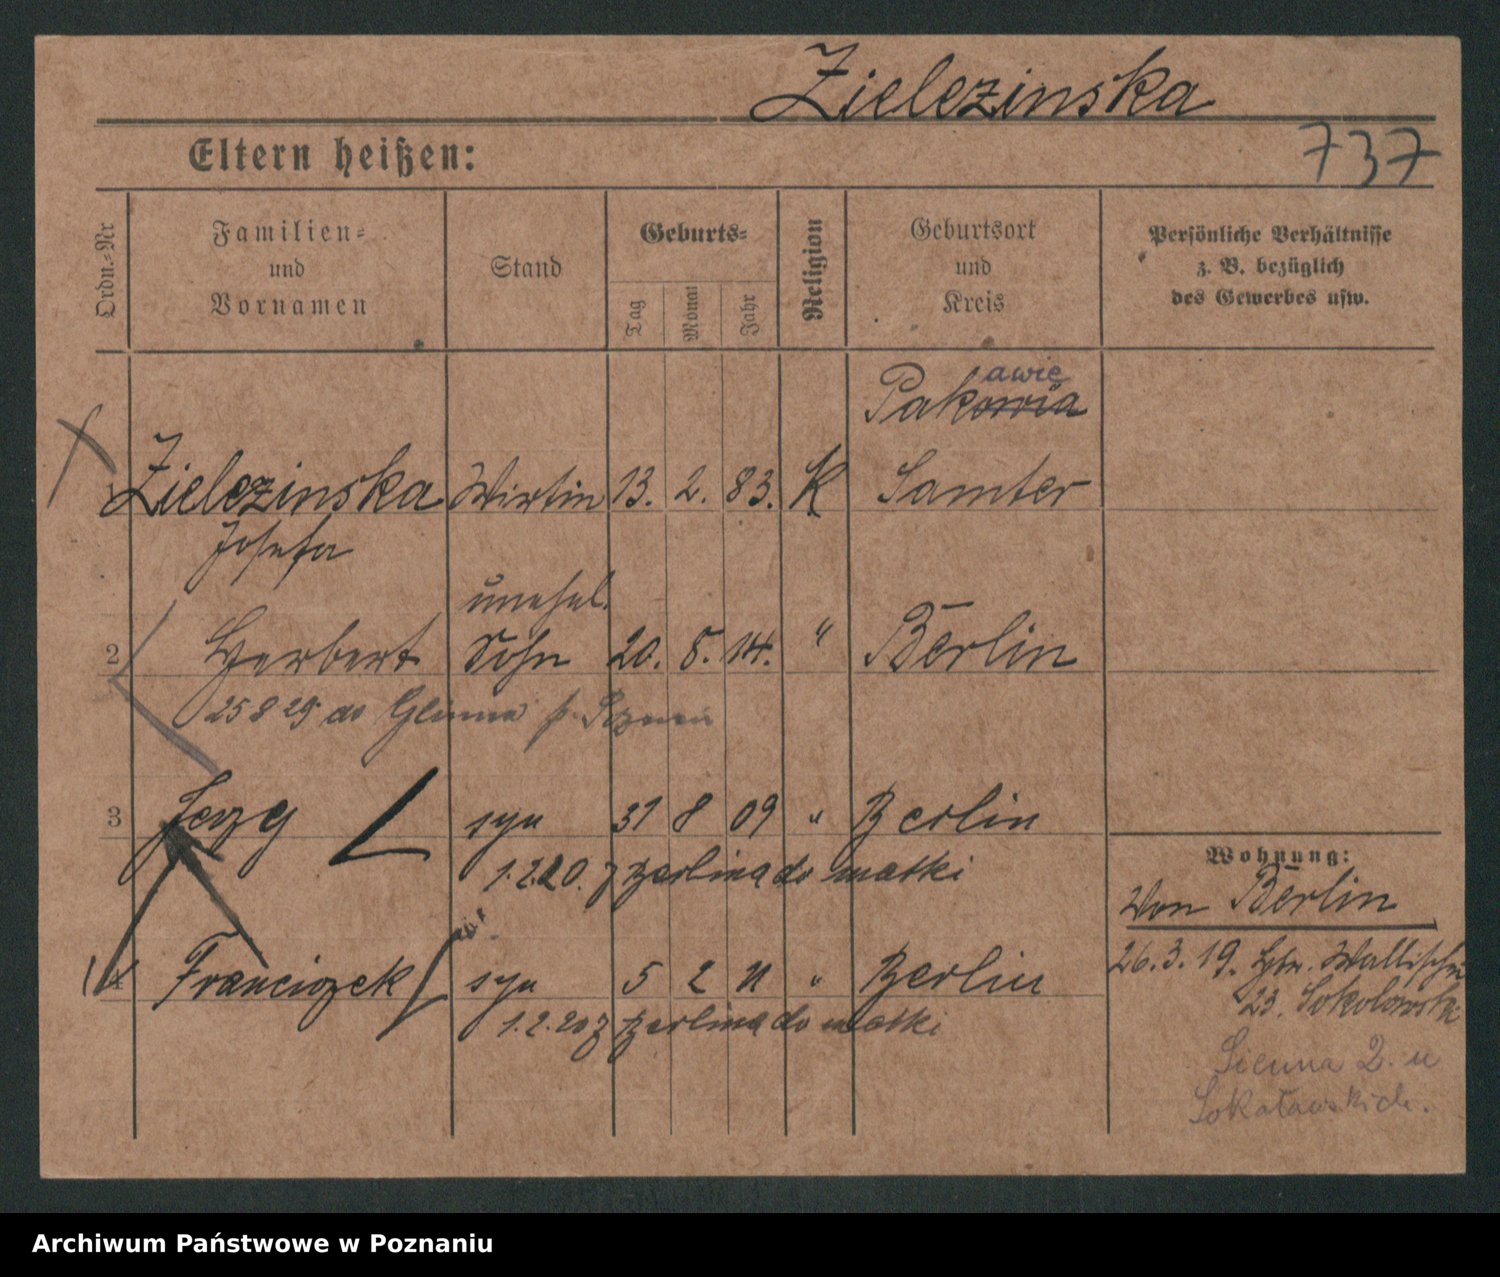 Zielezinska
737
Eltern heißen:
Ordn.-Nr
Familien-
und
Vornamen
Stand
Geburts-
Tag
Monat
Jahr
Religion
Geburtsort
und
Kreis
Persönliche Verhältnisse
z. B. bezüglich
des Gewerbes usw.
awie
Pakowia
1 Zielezinska Wirtin 13. 2. 83. K Samter
Josefa
unehel.
2 Herbert Sohn 20. 5. 14. " Berlin
25 8 29 do p. Poznań
3 Jerzy syn 31 8 09 " Berlin
1.2.20. z Berlina do matki
4 Franciszek syn 5 2 11 " Berlin
1.2.20 z Berlina do matki
Wohnung:
Von Berlin
26.3.19. Wallischei
23. Sokolowski
Sienna 2. u